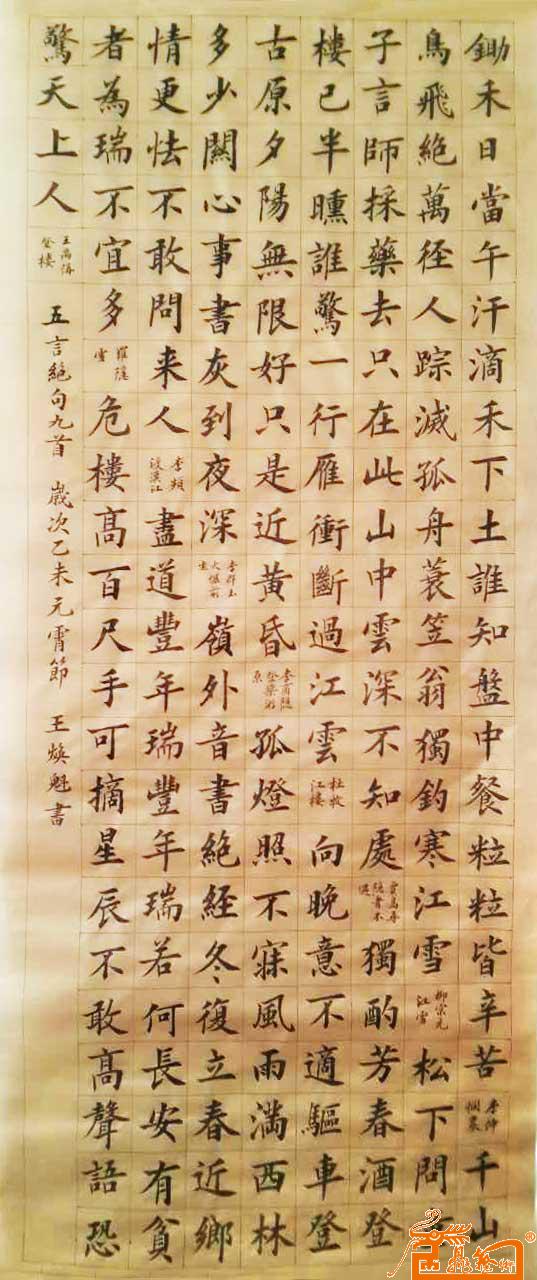 鋤禾日當午汗滴禾下土誰知盤中餐粒粒皆辛苦 李紳憫農 千山
鳥飛絕萬徑人踪滅孤舟蓑笠翁獨釣寒江雪 柳宗元江雪 松下問
子言師採藥去只在此山中雲深不知處 賈島尋隱者不遇 獨酌芳春酒登
樓已半曛誰驚一行雁衝斷過江雲 杜牧江樓 向晚意不適驅車登
古原夕陽無限好只是近黃昏 李商隱登樂游原 孤燈照不寐風雨滿西林
多少關心事書灰到夜深 李群玉火爐前坐 嶺外音書絕經冬復立春近鄉
情更怯不敢問来人 李頻渡漢江 盡道豐年瑞豐年瑞若何長安有貧
者為瑞不宜多 羅隱雪 危樓高百尺手可摘星辰不敢高聲語恐
驚天上人 王禹偁登樓 五言絕句九首 歲次乙未元宵節 王煥魁書